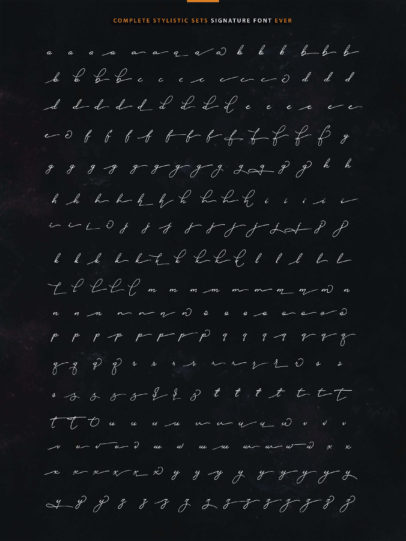 COMPLETE STYLISTIC SETS SIGNATURE FONT EVER
a a a a a a a a a b b b b b b
b b b b c c c c c c c d d d
d d d d d d d d d e e e e e e
e e f f f f f f f f f f f f g
g g g g g g g g g g g g g h h
h h h h h h h h h h i i i i i
i i i i j j j j j j j j j j j
k k k k k k k k k k l l l l l
l l l l l m m m m m m m m n
n n n n n n n n o o o o o o o
p p p p p p p p q q q q q q q
q q q q r r r r r r r r r s s
s s s s s s s s t t t t t t t
t t t u u u u u u u u u v v v
v v v v v w w w w w w w w x x
x x x x x x x y y y y y y y y
y y y z z z z z z z z z z z